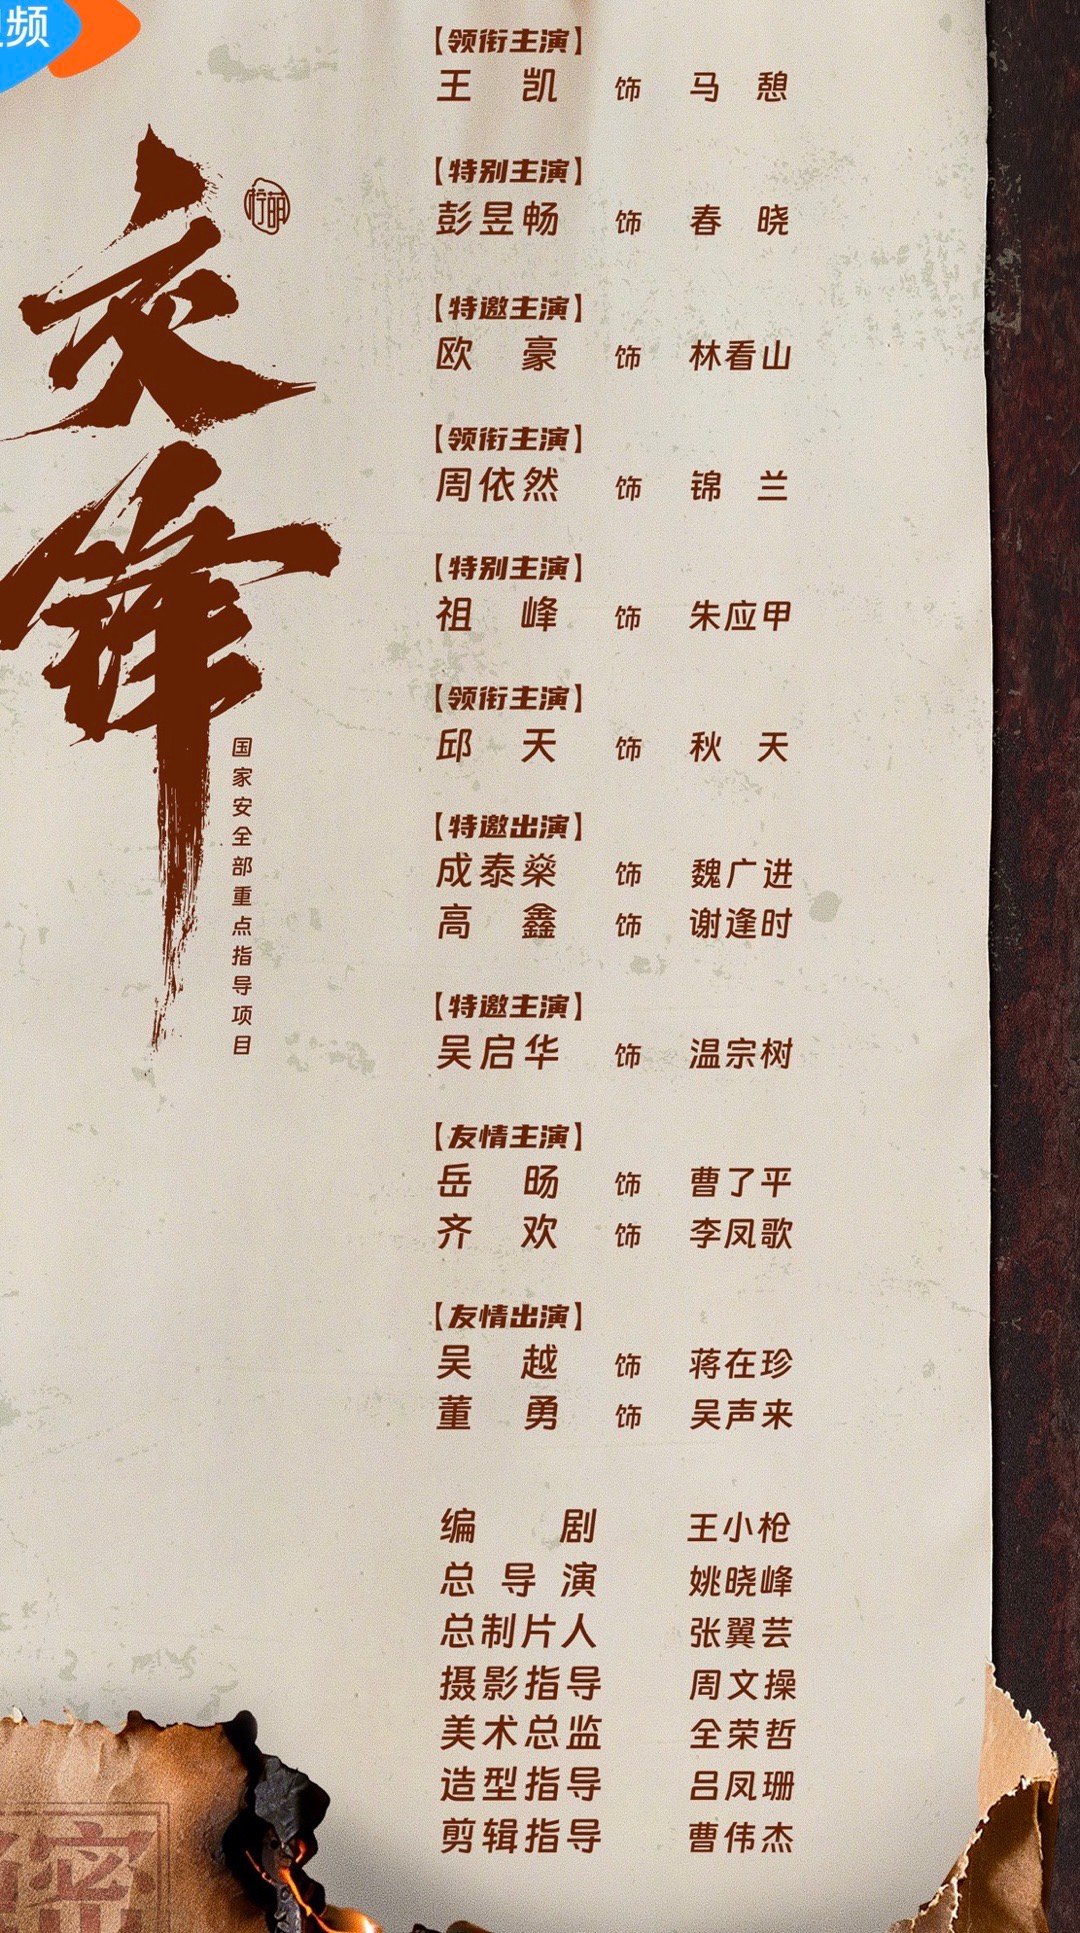 视频
交锋
柠萌
国家安全部重点指导项目
【领衔主演】
王凯 饰 马憩
【特别主演】
彭昱畅 饰 春晓
【特邀主演】
欧豪 饰 林看山
【领衔主演】
周依然 饰 锦兰
【特别主演】
祖峰 饰 朱应甲
【领衔主演】
邱天 饰 秋天
【特邀出演】
成泰燊 饰 魏广进
高鑫 饰 谢逢时
【特邀主演】
吴启华 饰 温宗树
【友情主演】
岳旸 饰 曹了平
齐欢 饰 李凤歌
【友情出演】
吴越 饰 蒋在珍
董勇 饰 吴声来
编剧 王小枪
总导演 姚晓峰
总制片人 张翼芸
摄影指导 周文操
美术总监 全荣哲
造型指导 吕凤珊
剪辑指导 曹伟杰
密